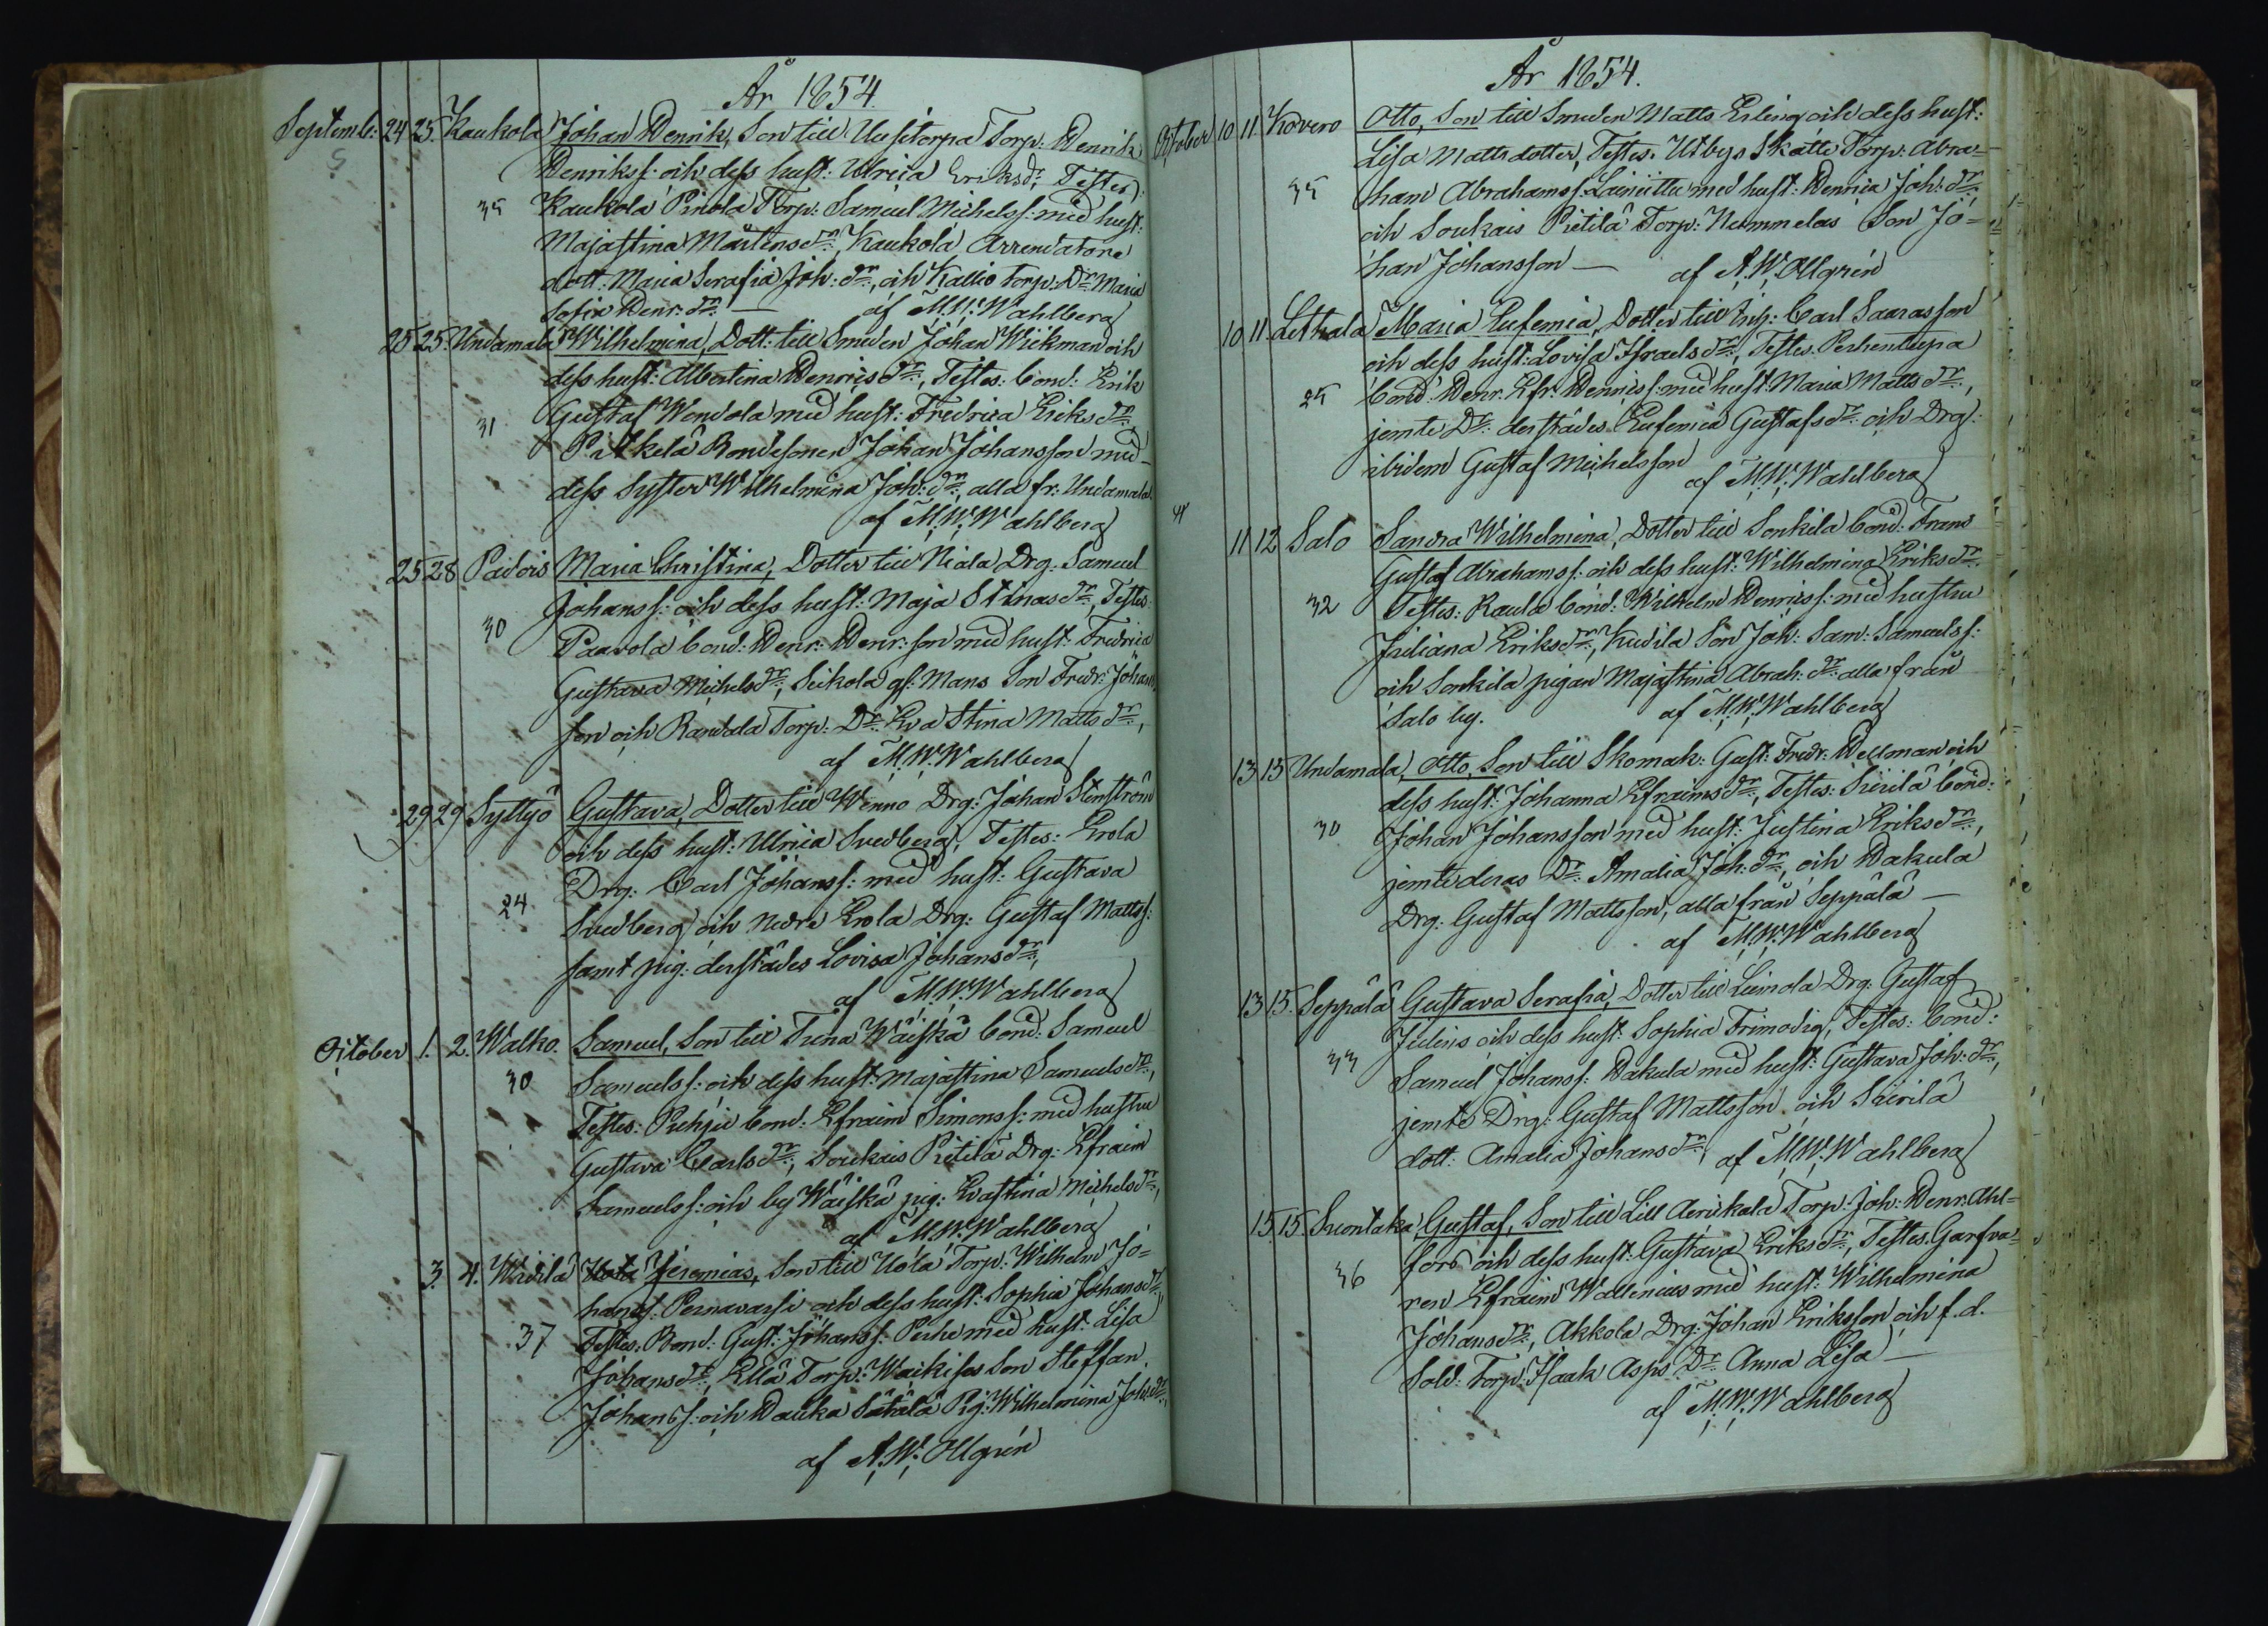 År 1854.
Septemb: 24 25. Kaukola Johan Henrik, Son till Uusitorpa Torp: Henrik
Henrikss: och dess hust: Ulrica Eriksdr, Testes:
35 Kaukola Pinola Torp: Samuel Michelss: med hust:
Majastina Mårtensdr:, Kaukola Arrendatore
dott: Maria Serafia Joh: dr:, och Kallio torp: Dr Maria
Sofia Henr: dr: — af M. W. Wahlberg
25 25. Undamala Wilhelmina, Dott: till Smeden Johan Wickman och
dess hust: Albertina Henricsdr:, Testes: Bond: Erik
31 Gustaf Wendola med hust: Fredrica Eriksdr:
Pitkelä Bondesonen Johan Johansson med
dess Syster Wilhelmina Joh: dr:, alla fr: Undamala.
af M. W. Wahlberg
25 28 Padois Maria Christina, Dotter till Niala Drg: Samuel
Johanss: och dess hust: Maja Stinasdr:, Testes:
30 Paavola Bond: Henr: Henr: son med hust: Fredrica
Gustava Michelsdr:, Seikola gf: Mans Son Fredr: Johans
son och Randala Torp: Dr: Eva Stina Mattsdr:,
af M. W. Wahlberg
29 29 Syllyö Gustava, Dotter till Wenno Drg: Johan Stenström
och dess hust: Ulrica Svedberg, Testes: Erola
Drg: Carl Johanss: med hust: Gustava
24 Svedberg och nedre Erola Drg: Gustaf Mattss:
samt pig: derstädes Lovisa Johansdr:,
af M. W. Wahlberg
October 1. 2. Walko. Samuel, Son till Tuna Wäiskä Bond: Samuel
30 Samuelss: och dess hust: Majastina Samuelsdr:,
Testes: Puhju Bond: Efraim Simonss: med hustru
Gustava Carlsdr:, Soukais Pietilä Drg: Efraim
Samuelss: och by Wäiskä pig: Evastina Michelsdr:,
af M. W. Wahlberg
3. 4. Wirilä Jeremias, Son till Uola Torp: Wilhelm Jo=
hanss: Pernavassi och dess hust: Sophia Johansdr:
37 Testes. Bond: Gust: Johanss: Perhe med hust: Lisa
Johansdr:, Ellä Torp: Waikisas Son Steffan
Johanss: och Hauka Sätälä Pig: Wilhelmina Joh: dr:,
af A. W. Ollgrén
År 1854.
October 10 11 Kovero Otto, Son till Smeden Matts Erling och dess hust:
Lisa Mattsdotter, Testes: Utbys Skatte Torp: Abra=
35 ham Abrahamss: Lainiittu med hust: Henrica Joh: dr:
och Soukais Pietilä Torp: Nummelas Son Jo=
han Johansson — af A. W. Ollgrén
10 11. Lethala Maria Eufemia, Dotter till Inh: Carl Saarasson
och dess hust: Lovisa Israelsdr:, Testes. Perhentupa
25 Bond: Henr: Efr: Henricss: med hust: Maria Mattsdr:,
jemte Dr: derstädes Eufemia Gustafsdr: och Drg:
ibidem Gustaf Michelsson
af M. W. Wahlberg
11 12 Salo Sandra Wilhelmina, Dotter till Sonkila Bond: Frans
Gustaf Abrahamss: och dess hust: Wilhelmina Eriksdr:
32 Testes: Raula Bond: Wilhelm Henricss: med hustru
Juliana Eriksdr:, Kudila Son Joh: Sam: Samuelss:
och Sonkila pigan Majastina Abrah: dr: alla från
Salo by. af M. W. Wahlberg
13 15 Undamala, Otto, Son till Skomak: Gust: Fredr: Hellman och
dess hust: Johanna Efraimsdr:, Testes: Sirilä Bond:
30 Johan Johansson med hust: Justina Eriksdr:,
jemte deras Dr: Amalia Joh: dr:, och Hakula
Drg: Gustaf Mattsson, alla från Seppälä —
af M. W. Wahlberg
13 15. Seppälä Gustava Serafia, Dotter till Liimola Drg: Gustaf
Julius och dess hust: Sophia Frimodig, Testes: Bond:
33 Samuel Johanss: Hakula med hust: Gustava Joh: dr:,
jemte Drg: Gustaf Mattsson och Sirilä
dott: Amalia Johansdr:, af M. W. Wahlberg
15 15. Suontaka, Gustaf, Son till Lill Airikala Torp: Joh: Henr: Ahl=
fors och dess hust: Gustava Eriksdr:, Testes. Garfva=
36 ren Efraim Wallenius med hust: Wilhelmina
Johansdr:, Akkola Drg: Johan Eriksson och f. d.
Sold: Torp: Isaak Asps Dr: Anna Lisa —
af M. W. Wahlberg